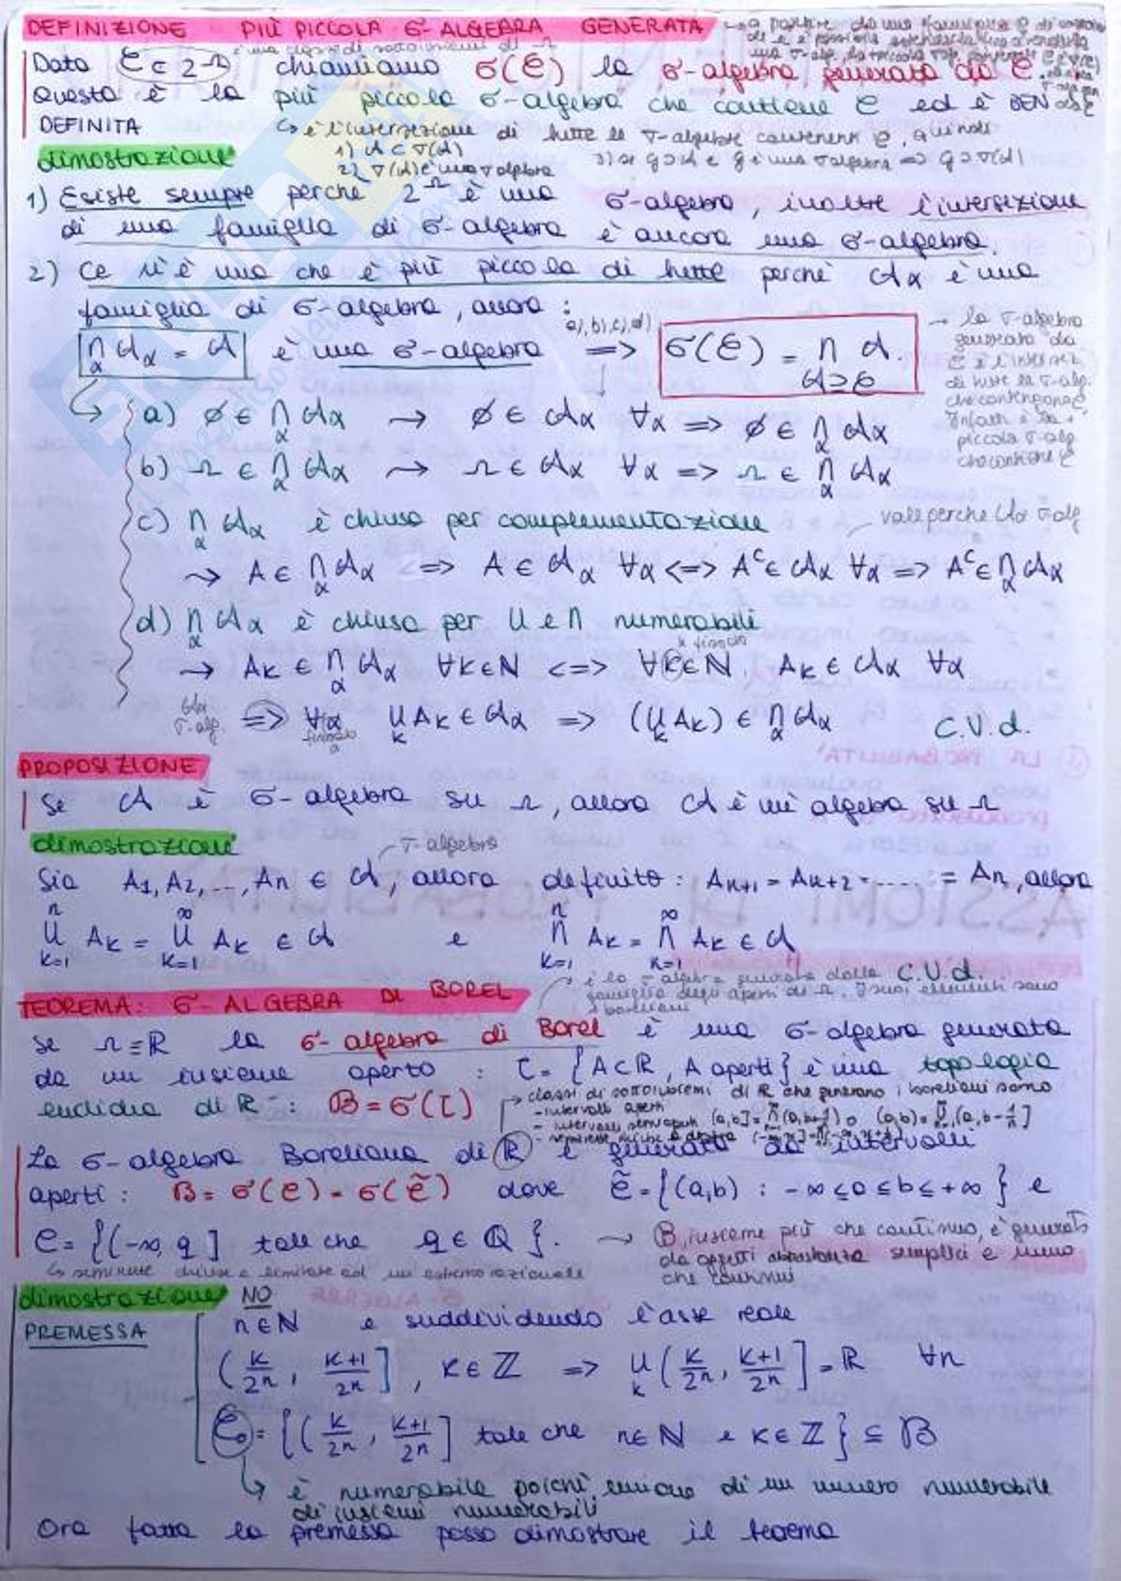 DEFINIZIONE PIÙ PICCOLA σ-ALGEBRA GENERATA
è una classe di sottoinsiemi di Ω
Dato C ⊂ 2^Ω chiamiamo σ(C) la σ-algebra generata da C.
Questa è la più piccola σ-algebra che contiene C ed è BEN
DEFINITA
↳ è l'intersezione di tutte le σ-algebre contenenti C, quindi
1) A ⊂ σ(A)
2) σ(A) è una σ algebra
3) se G ⊃ A e G è una σ algebra ⇒ G ⊃ σ(A)
dimostrazione
1) Esiste sempre perché 2^Ω è una σ-algebra, inoltre l'intersezione
di una famiglia di σ-algebra è ancora una σ-algebra.
2) Ce n'è una che è più piccola di tutte perché Aα è una
famiglia di σ-algebra, allora :
∩α Aα = A è una σ-algebra a), b), c), d) ⇒ σ(C) = ∩ A⊇C A.
→ la σ-algebra
generata da
C è l'intersez.
di tutte le σ-alg.
che contengono C
Infatti è la +
piccola σ-alg
che contiene C
a) ∅ ∈ ∩α Aα → ∅ ∈ Aα ∀α ⇒ ∅ ∈ ∩α Aα
b) Ω ∈ ∩α Aα → Ω ∈ Aα ∀α ⇒ Ω ∈ ∩α Aα
c) ∩α Aα è chiuso per complementazione
vale perché Aα σ-alg
→ A ∈ ∩α Aα <=> A ∈ Aα ∀α <=> A^c ∈ Aα ∀α => A^c ∈ ∩α Aα
d) ∩α Aα è chiusa per ∪ e ∩ numerabili
k fissato
→ Ak ∈ ∩α Aα ∀k∈ℕ <=> ∀k∈ℕ, Ak ∈ Aα ∀α
Aα σ-alg. => ∀α fissato ∪k Ak ∈ Aα => (∪k Ak) ∈ ∩α Aα C.V.d.
PROPOSIZIONE
Se A è σ-algebra su Ω, allora A è un'algebra su Ω
dimostrazione
σ-algebra
Sia A1, A2, ..., An ∈ A, allora definito : An+1 = An+2 = ..... = An, allora
∪(k=1)^n Ak = ∪(k=1)^∞ Ak ∈ A e ∩(k=1)^n Ak = ∩(k=1)^∞ Ak ∈ A
C.V.d.
è la σ-algebra generata dalla
famiglia degli aperti di Ω. I suoi elementi sono
i boreliani
TEOREMA: σ-ALGEBRA DI BOREL
Se Ω≡ℝ la σ-algebra di Borel è una σ-algebra generata
da un insieme aperto : τ = {A⊂ℝ, A aperti} è una topologia
euclidea di ℝ : B = σ(τ)
→ classi di sottoinsiemi di ℝ che generano i boreliani sono
- intervalli aperti
- intervalli semiaperti
La σ-algebra Boreliana di ℝ è generata da intervalli
aperti : B = σ(C) = σ(C̃) dove C̃ = {(a,b) : -∞ ≤ a ≤ b ≤ +∞} e
C = {(-∞, q] tale che q ∈ ℚ}.
→ B, insieme più che continuo, è generato
da oggetti abbastanza semplici e meno
che continui
↳ semirette chiuse e limitate ad un estremo razionale
dimostrazione NO
PREMESSA
n∈ℕ e suddividendo l'asse reale
(k/2^n, (k+1)/2^n], k∈ℤ => ∪k (k/2^n, (k+1)/2^n] = ℝ ∀n
C0 = {(k/2^n, (k+1)/2^n] tale che n∈ℕ e k∈ℤ} ⊆ B
↳ è numerabile poiché unione di un numero numerabile
di insiemi numerabili
Ora fatta la premessa posso dimostrare il teorema